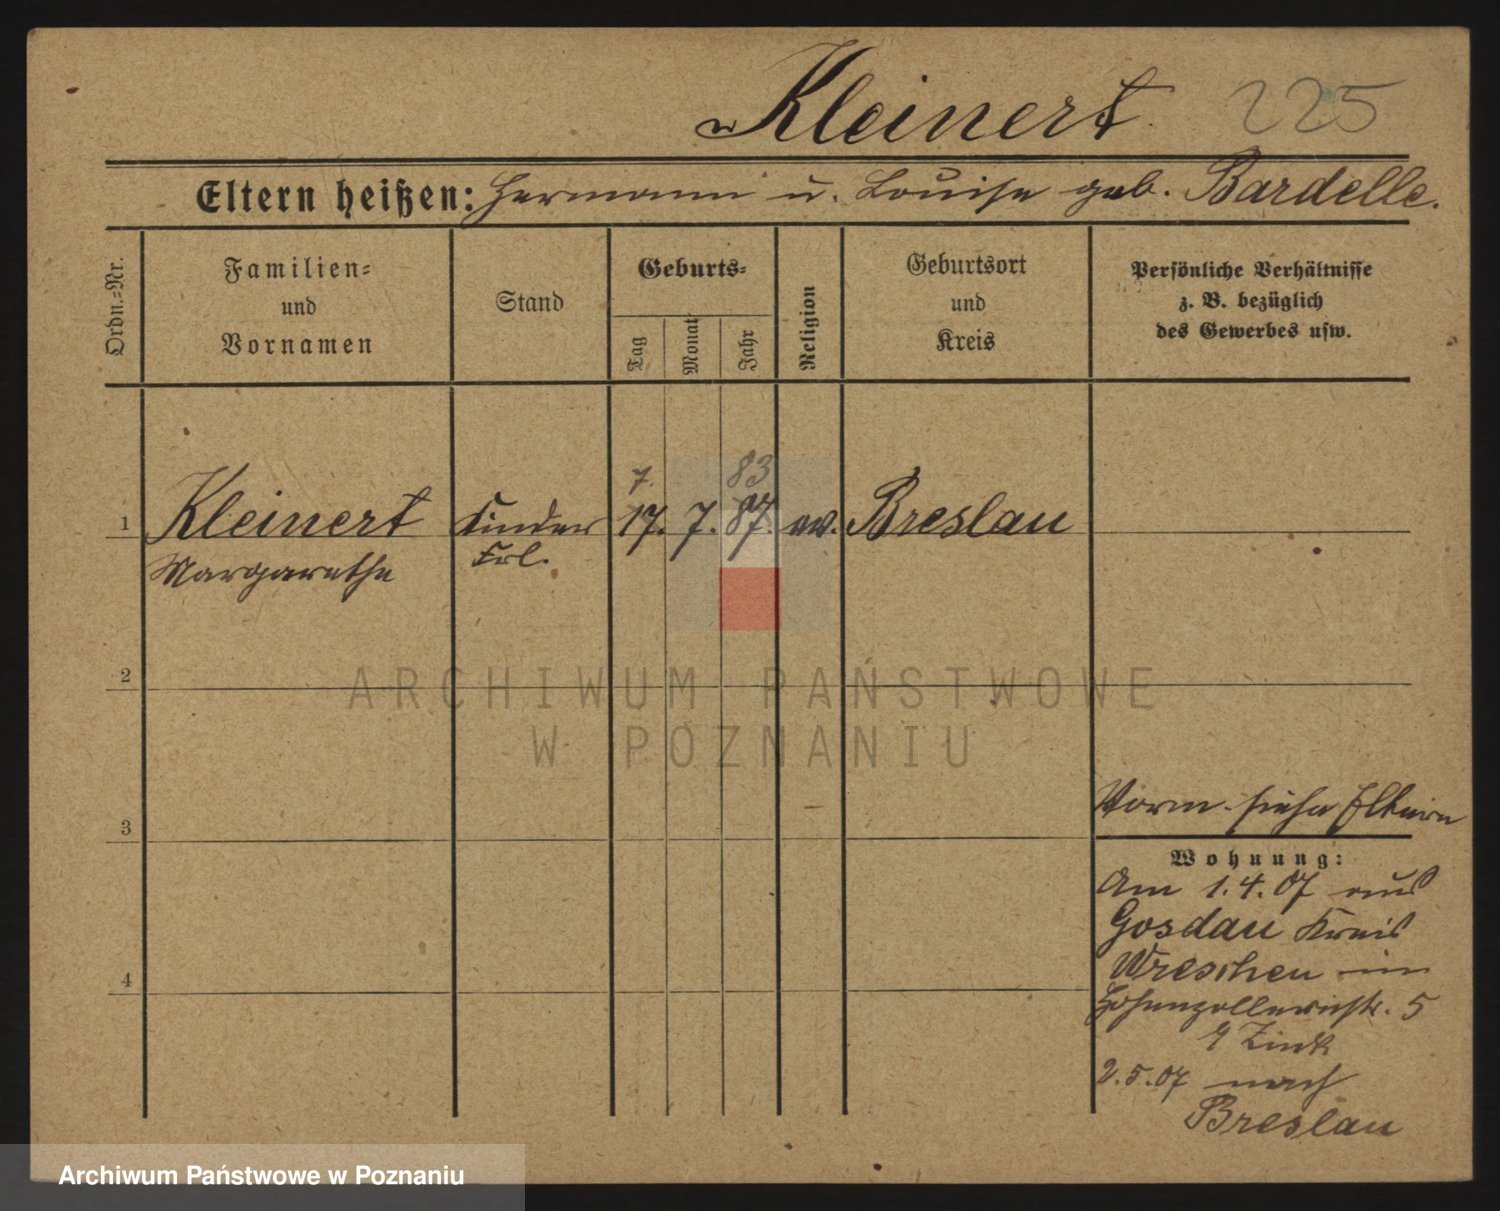 Kleinert 225
Eltern heißen: Hermann u. Louise geb. Bardelle.
Ordn.-Nr.
Familien-
und
Vornamen
Stand
Geburts-
Tag
Monat
Jahr
Religion
Geburtsort
und
Kreis
Persönliche Verhältnisse
z. B. bezüglich
des Gewerbes usw.
7. 83
1 Kleinert Kinder 17. 7. 87. ev. Breslau
Margarethe Frl.
2
ARCHIWUM PAŃSTWOWE
W POZNANIU
Vorm. siehe Eltern
3
Wohnung:
Am 1.4.07 aus
Gosdau Kreis
4
Wreschen in
Hohenzollernstr. 5
Zink
2.5.07 nach
Breslau
Archiwum Państwowe w Poznaniu